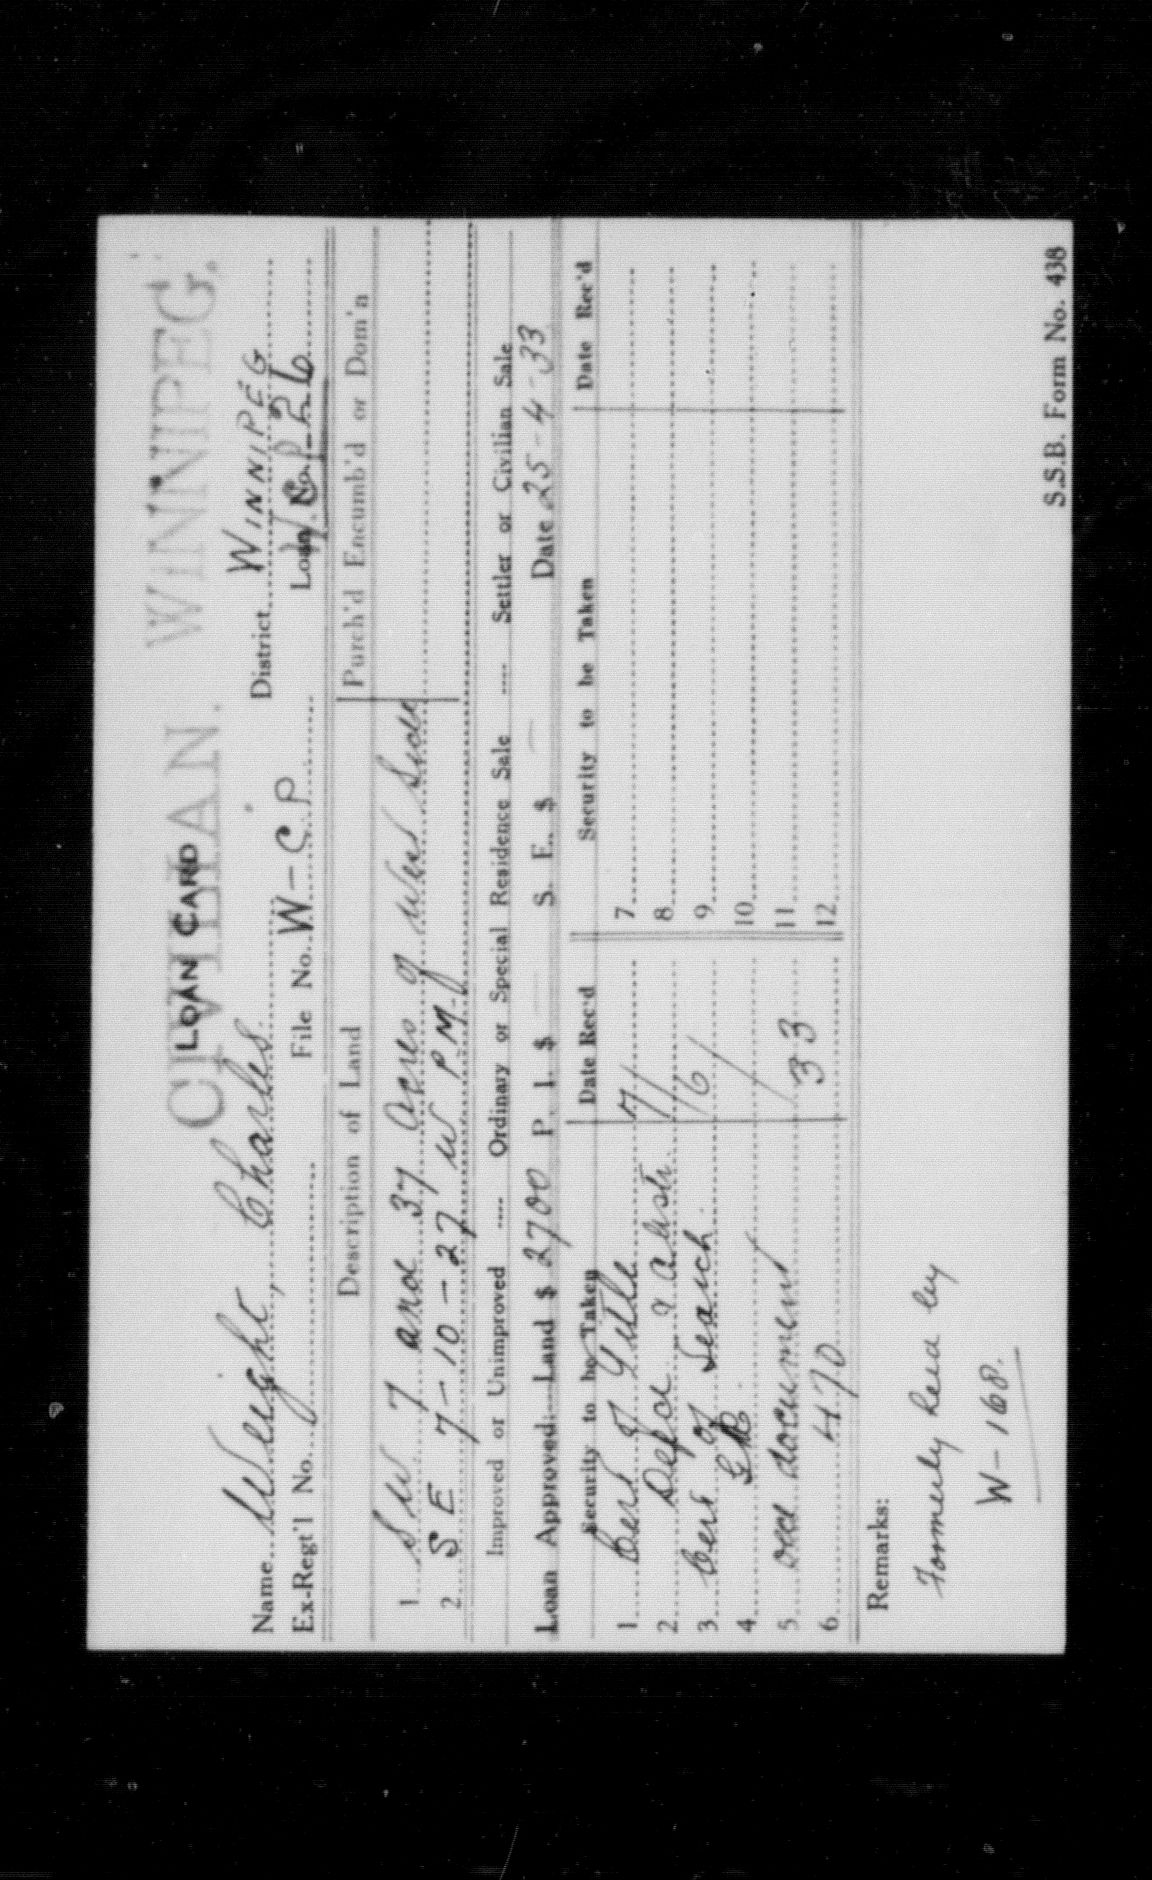 CIVILIAN. WINNIPEG.
LOAN CARD
Name Wright, Charles District WINNIPEG
Ex-Regt'l No. File No. W-C.P Loan No. W.C.P. 26
Description of Land Purch'd Encumb'd or Dom'n
1 SW 7 and 37 acres of West Side
2 SE 7-10-27 W P.M.
Improved or Unimproved ---- Ordinary or Special Residence Sale ---- Settler or Civilian Sale
Loan Approved:—Land $ 2700 P. I. $ — S. E. $ — Date 25-4-33
Security to be Taken Date Rec'd Security to be Taken Date Rec'd
1 Cert of Title 7/ 7
2 & Abstr. 8
3 Cert of Search 6/ 9
4 10
5 old document 11
6 470 33 12
Remarks:
Formerly held by
W-168.
S.S.B. Form No. 438